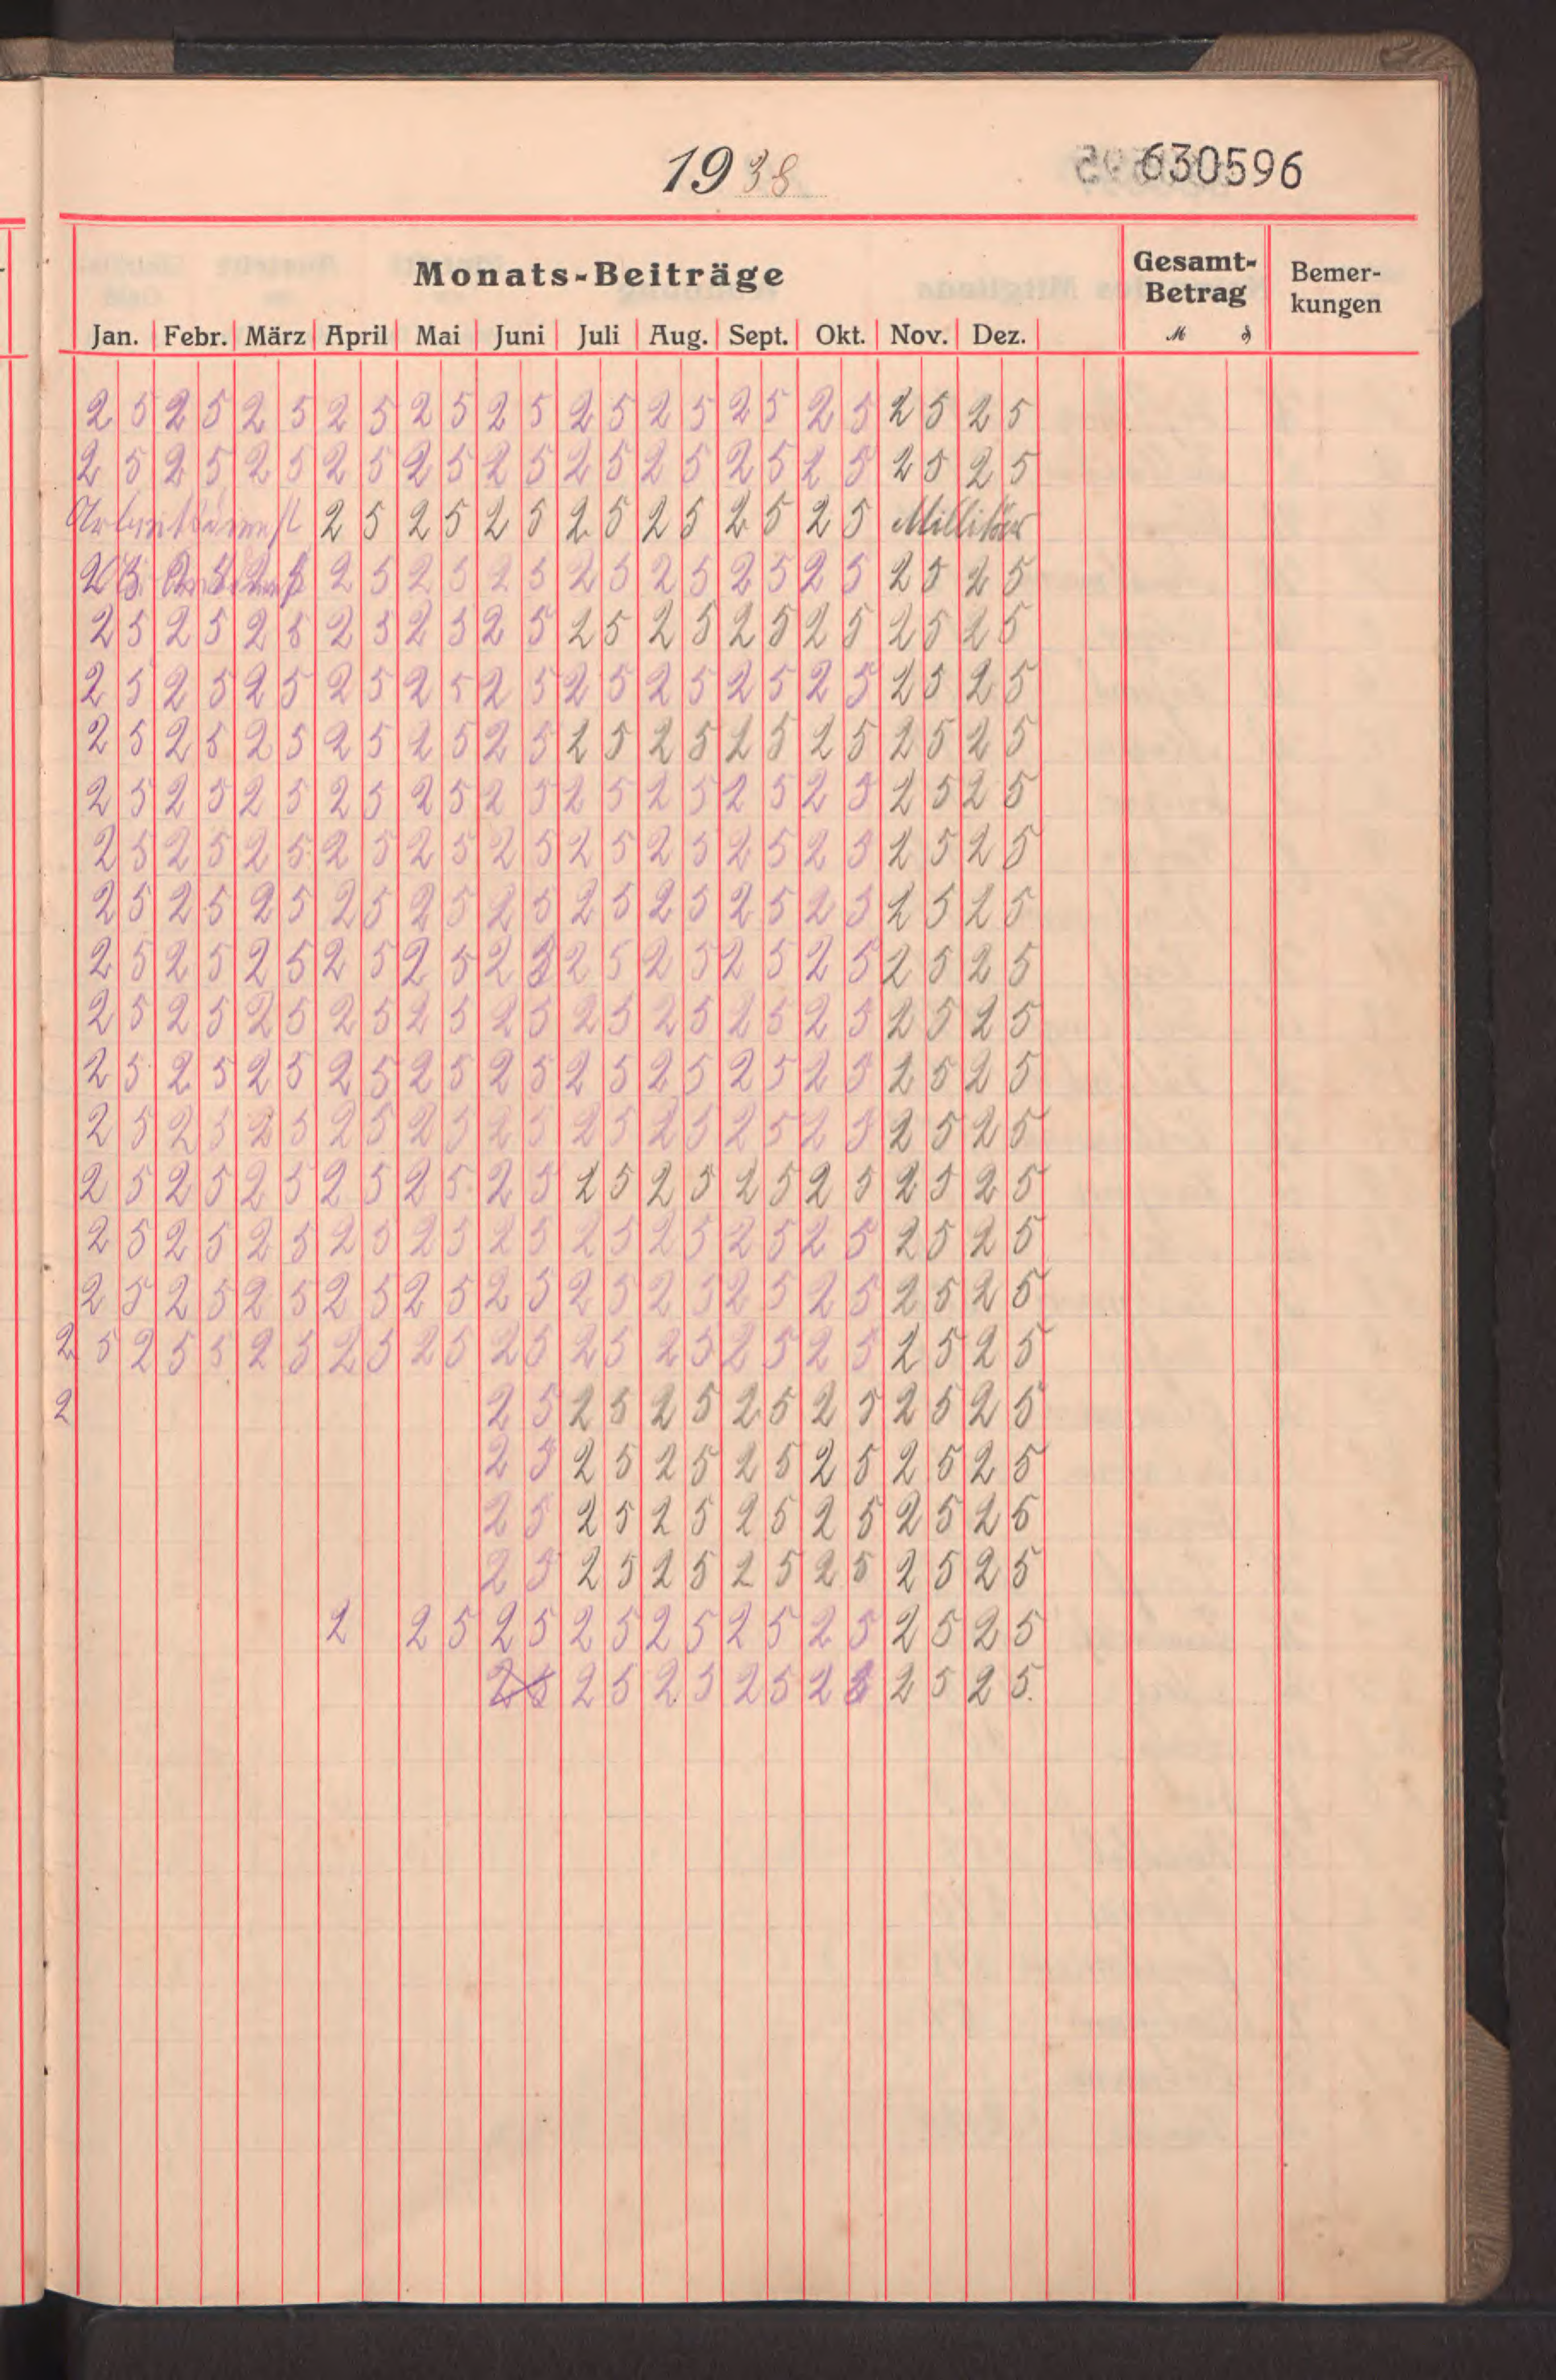 1938
630596
Monats-Beiträge Gesamt-Betrag Bemer-kungen
Jan. Febr. März April Mai Juni Juli Aug. Sept. Okt. Nov. Dez. M ₰
25 25 25 25 25 25 25 25 25 25 25 25
25 25 25 25 25 25 25 25 25 25 25 25
Arbeitsdienst 25 25 25 25 25 25 25 Millitär
25 25 25 25 25 25 25 25 25
25 25 25 25 25 25 25 25 25 25 25 25
25 25 25 25 25 25 25 25 25 25 25 25
25 25 25 25 25 25 25 25 25 25 25 25
25 25 25 25 25 25 25 25 25 25 25 25
25 25 25 25 25 25 25 25 25 25 25 25
25 25 25 25 25 25 25 25 25 25 25 25
25 25 25 25 25 25 25 25 25 25 25 25
25 25 25 25 25 25 25 25 25 25 25 25
25 25 25 25 25 25 25 25 25 25 25 25
25 25 25 25 25 25 25 25 25 25 25 25
25 25 25 25 25 25 25 25 25 25 25 25
25 25 25 25 25 25 25 25 25 25 25 25
25 25 25 25 25 25 25 25 25 25 25 25
2 5 2 5 5 25 25 25 25 25 25 25 25 25 25
2 25 25 25 25 25 25 25
25 25 25 25 25 25 25
25 25 25 25 25 25 25
25 25 25 25 25 25 25
2 25 25 25 25 25 25 25 25
25 25 25 25 25 25 25